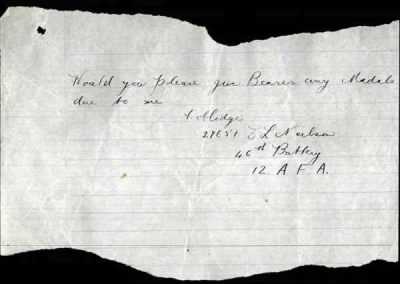 Would you please give Bearer any Medals
due to me
27651 E L Neilson
46th Battery
12 A. F. A.